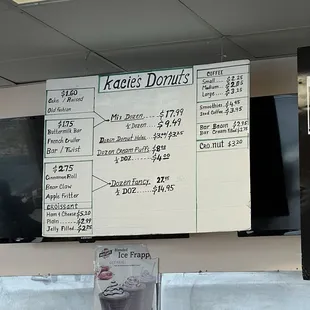 Kacie's Donuts
$1.60
Cake / Raised
Old Fashion
$1.75
Buttermilk Bar
French Cruller
Bar / Twist
$2.75
Cinnamon Roll
Bear Claw
Apple Fritter
Croissant
Ham & Cheese $5.20
Plain
Jelly Filled
Mix Dozen $17.99
½ Dozen $9.49
Dozen Donut Holes
Dozen Cream Puffs
½ Doz
Dozen Fancy
½ Doz $14.95
Coffee
Small
Medium
Large
Smoothies $4.95
Iced Coffee
Bar Bean $2.95
Bar Cream Filled
Cro.nut $3.20
Ice Frapp